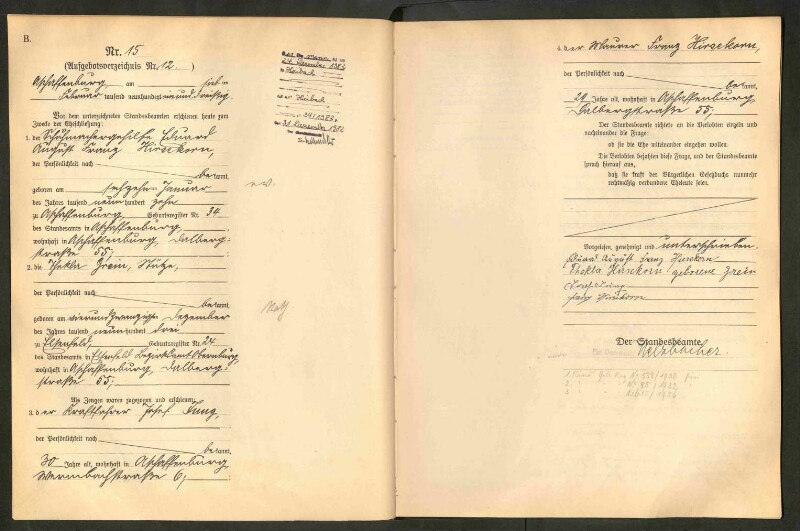 B.
Nr. 15
(Aufgebotsverzeichnis Nr. 12.)
Aschaffenburg am sieben
Februar tausend neunhundert neununddreißig.
Vor dem unterzeichneten Standesbeamten erschienen heute zum
Zwecke der Eheschließung:
1. der Schuhmachergehilfe Eduard
August Franz Hirsekorn,
der Persönlichkeit nach
bekannt,
geboren am sechzehn Januar
des Jahres tausend neunhundert zehn
zu Aschaffenburg Geburtsregister Nr. 34
des Standesamts in Aschaffenburg,
wohnhaft in Aschaffenburg, Dalberg-
straße 55;
ev.
2. die Thekla Zrein, Stütze,
der Persönlichkeit nach
bekannt,
geboren am vierundzwanzigste Dezember
des Jahres tausend neunhundert drei
zu Elsenfeld, Geburtsregister Nr. 24
des Standesamts in Elsenfeld Bezirksamt Obernburg,
wohnhaft in Aschaffenburg, Dalberg-
straße 55;
kath
Als Zeugen waren zugezogen und erschienen:
3. der Kraftfahrer Josef Jung,
der Persönlichkeit nach
bekannt,
30 Jahre alt, wohnhaft in Aschaffenburg,
Wermbachstraße 6,
4. der Maurer Franz Hirsekorn,
der Persönlichkeit nach
bekannt,
29 Jahre alt, wohnhaft in Aschaffenburg,
Dalbergstraße 55;
Der Standesbeamte richtete an die Verlobten einzeln und
nacheinander die Frage:
ob sie die Ehe miteinander eingehen wollen.
Die Verlobten bejahten diese Frage, und der Standesbeamte
sprach hierauf aus,
daß sie kraft des Bürgerlichen Gesetzbuchs nunmehr
rechtmäßig verbundene Eheleute seien.
Vorgelesen, genehmigt und unterschrieben.
Eduard August Franz Hirsekorn
Thekla Hirsekorn geborene Zrein
Josef Jung
Franz Hirsekorn
Der Standesbeamte